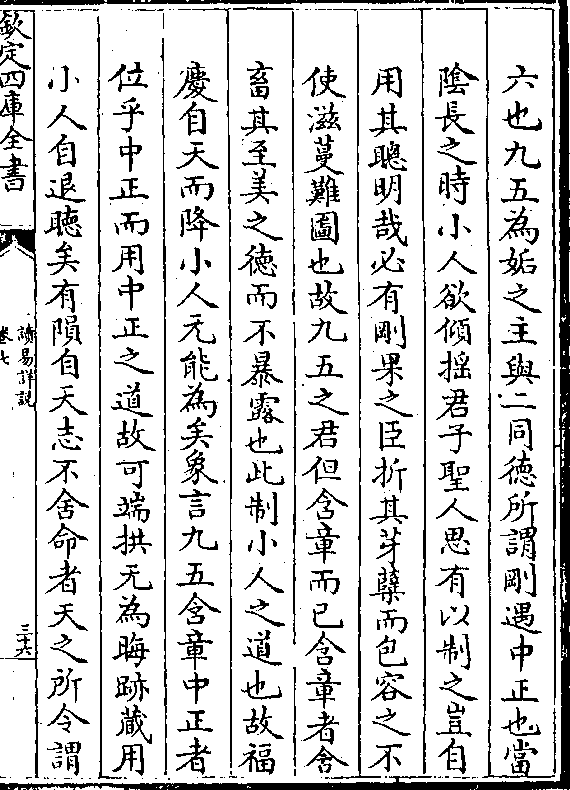 六也九五為姤之主與二同徳所謂剛遇中正也當
隂長之時小人欲傾揺君子聖人思有以制之豈自
用其聰明哉必有剛果之臣折其芽孽而包容之不
使滋蔓難圖也故九五之君但含章而已含章者含
畜其至美之徳而不暴露也此制小人之道也故福
慶自天而降小人无能為矣象言九五含章中正者
位乎中正而用中正之道故可端拱无為晦跡蔵用
小人自退聴矣有隕自天志不舍命者天之所令謂
欽定四庫全書
讀易詳說
卷七
三十六